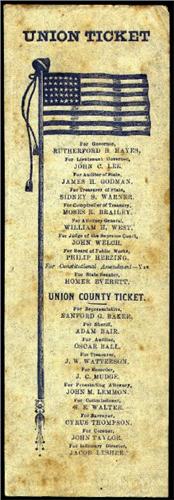 UNION TICKET
For Governor,
RUTHERFORD B. HAYES,
For Lieutenant Governor,
JOHN C. LEE.
For Auditor of State,
JAMES H. GODMAN.
For Treasurer of State,
SIDNEY S. WARNER.
For Comptroller of Treasury,
MOSES R. BRAILEY.
For Attorney General,
WILLIAM H. WEST.
For Judge of the Supreme Court,
JOHN WELCH.
For Board of Public Works,
PHILIP HERZING.
For Constitutional Amendment—Yes.
For State Senator,
HOMER EVERETT.
UNION COUNTY TICKET.
For Representative,
SANFORD G. BAKER.
For Sheriff,
ADAM BAIR.
For Auditor,
OSCAR BALL.
For Treasurer,
J. W. WATTERSON.
For Recorder,
J. C. MUDGE.
For Prosecuting Attorney,
JOHN M. LEMMON.
For Commissioner,
E. WALTER.
For Surveyor,
CYRUS THOMPSON.
For Coroner,
JOHN TAYLOR.
For Infirmary Director,
JACOB LESHER.